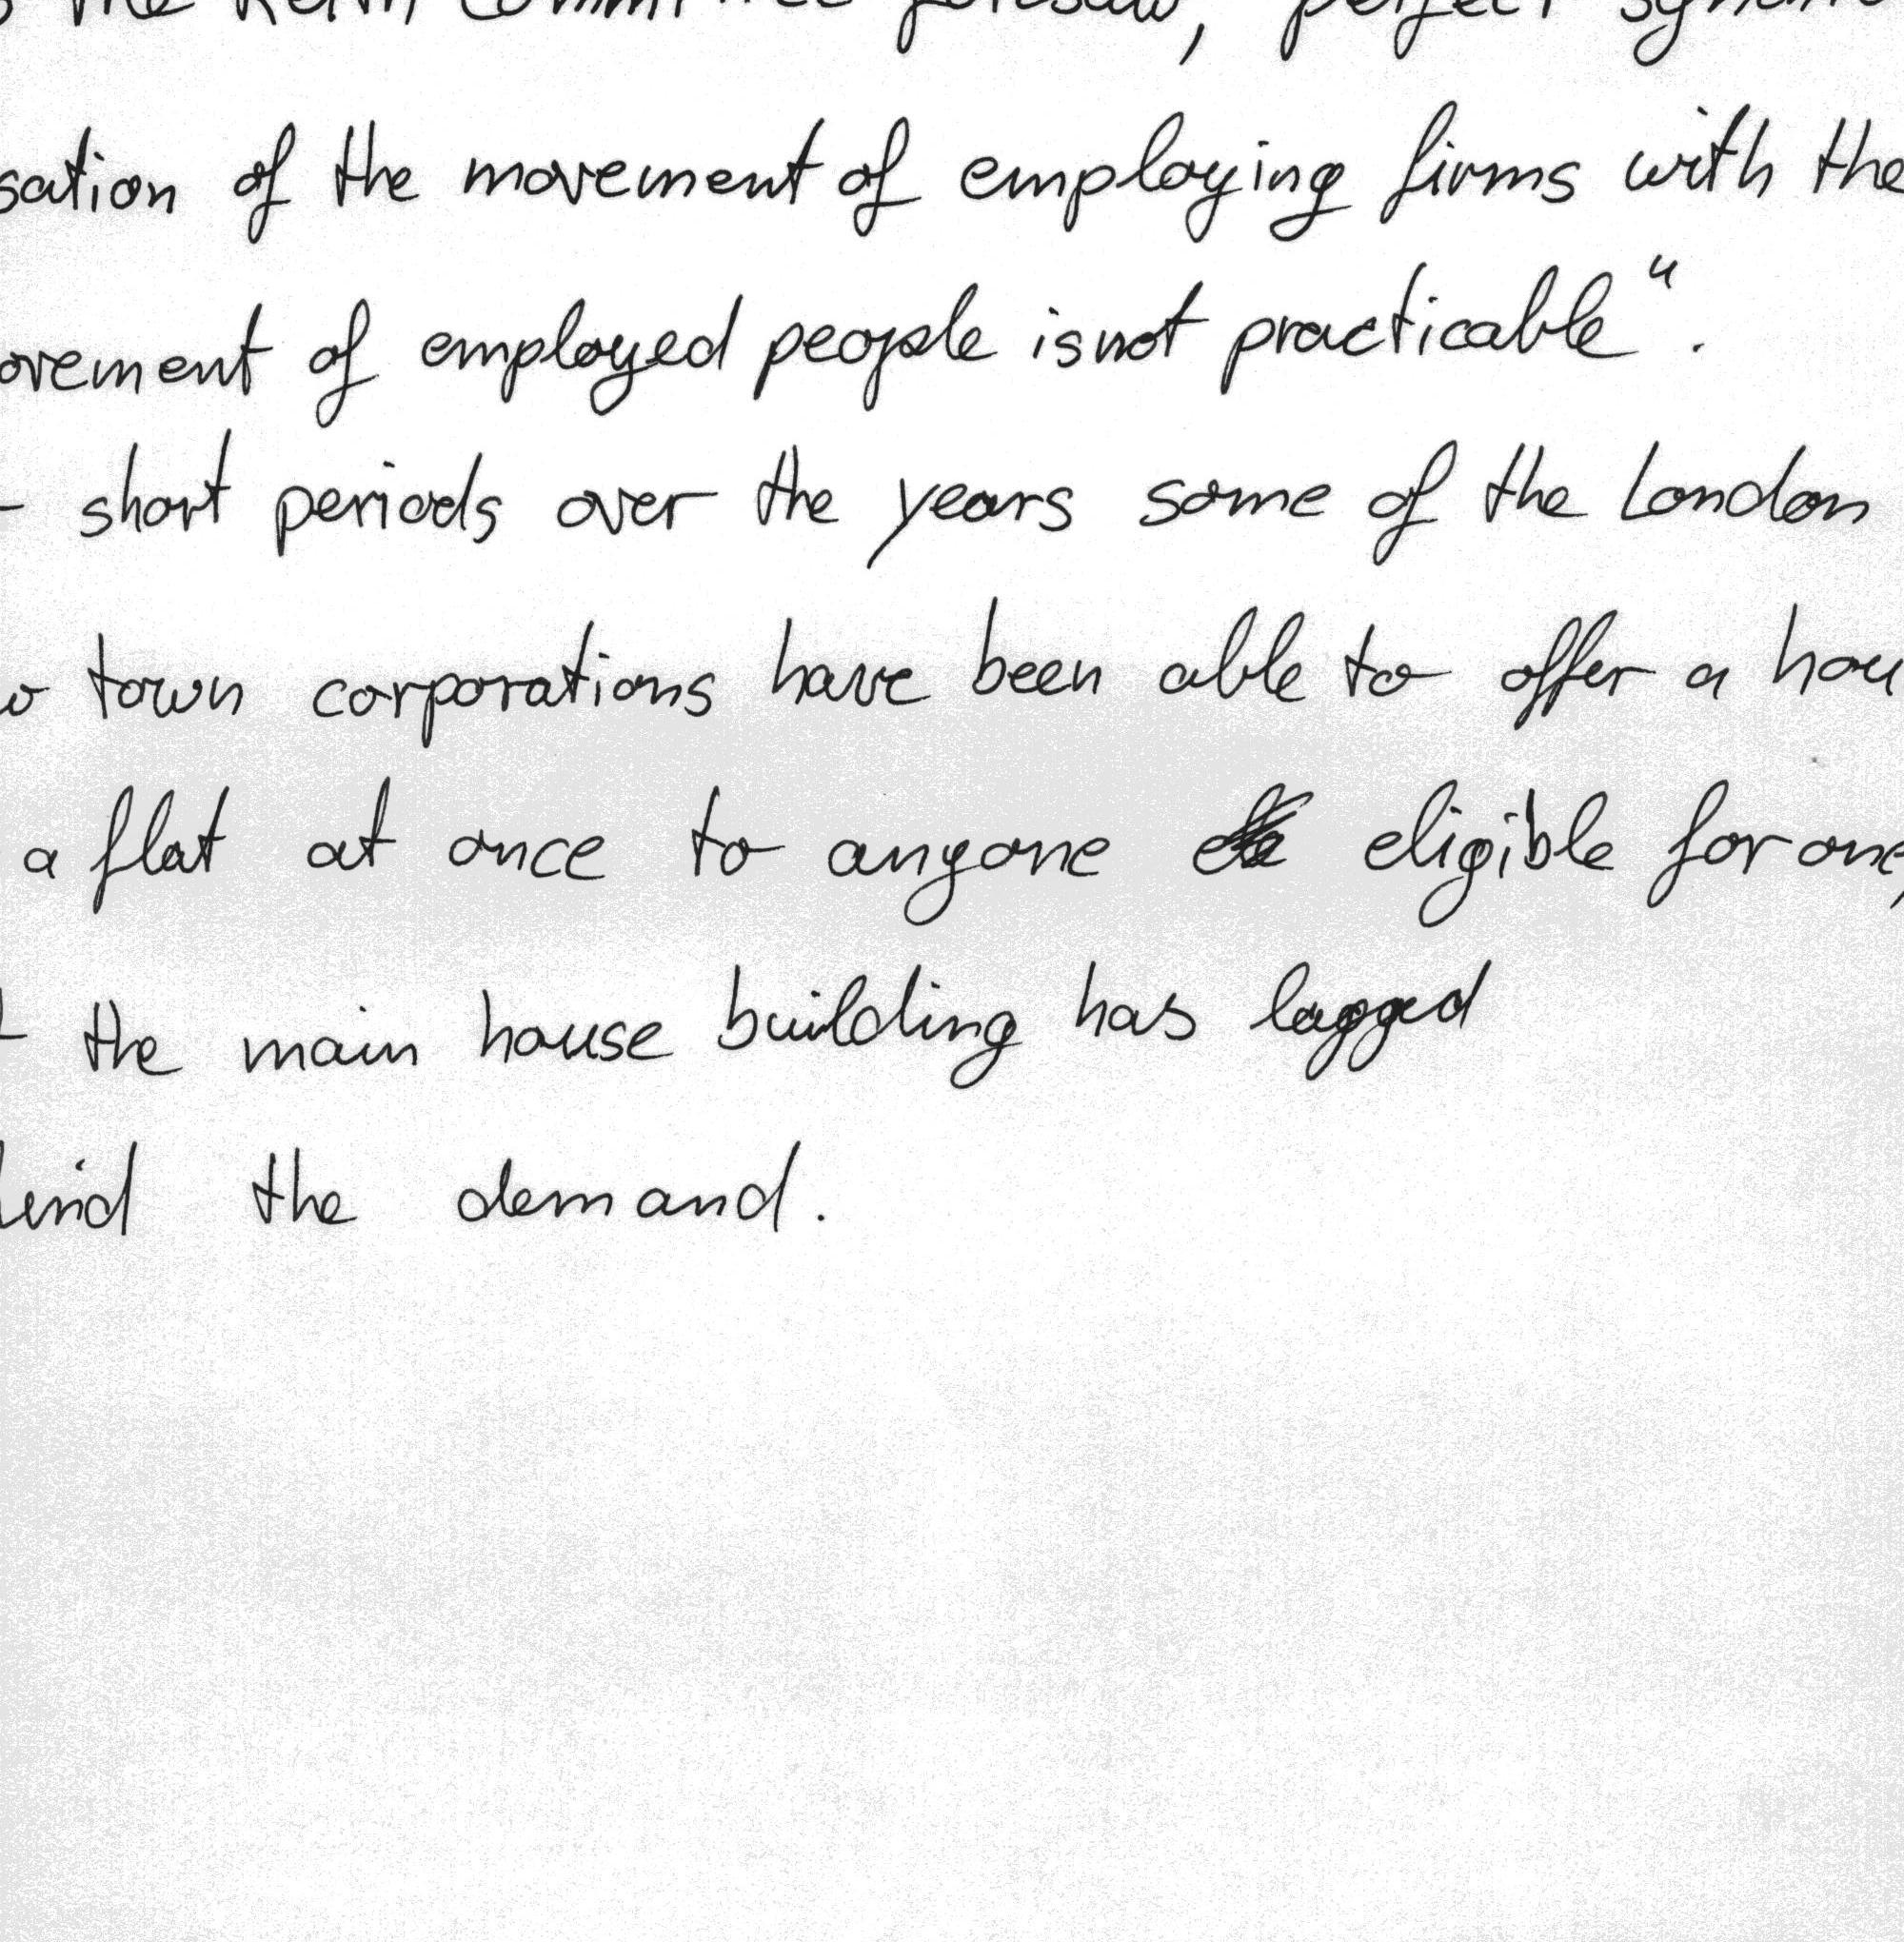 the Reith Committee foresaw, perfect
sation of the movement of employing firms with the
ovement of employed people is not practicable".
short periods over the years some of the London
town corporations have been able to offer a hou
a flat at once to anyone eligible for one,
the main house building has lagged
the demand.